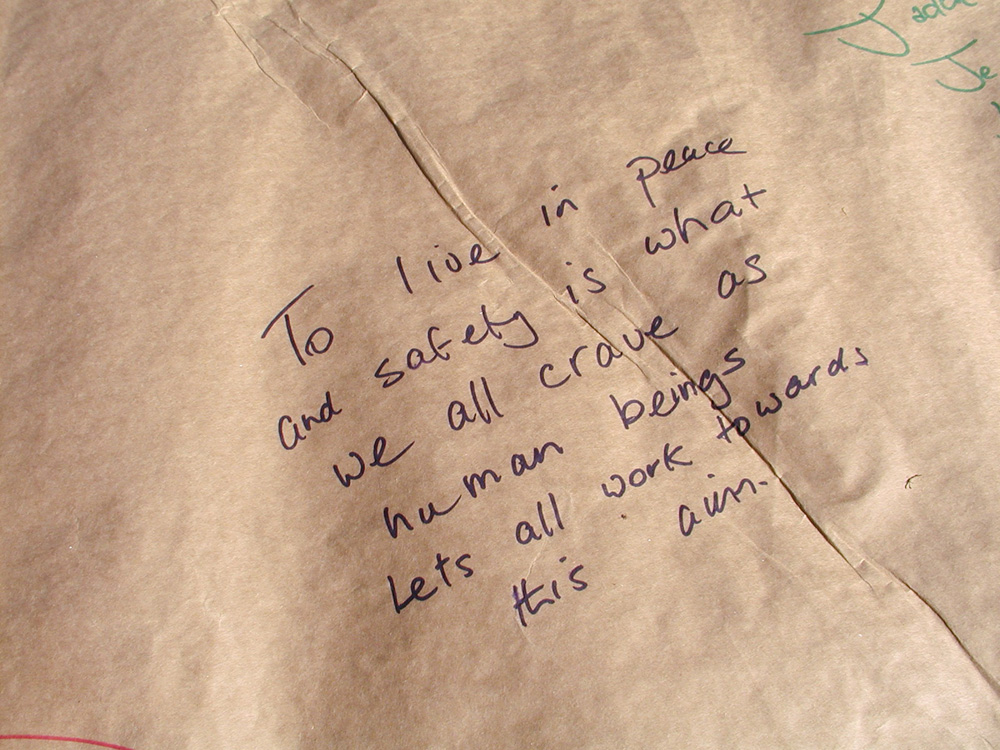 To live in peace
and safety is what
we all crave as
human beings
Lets all work towards
this aim.